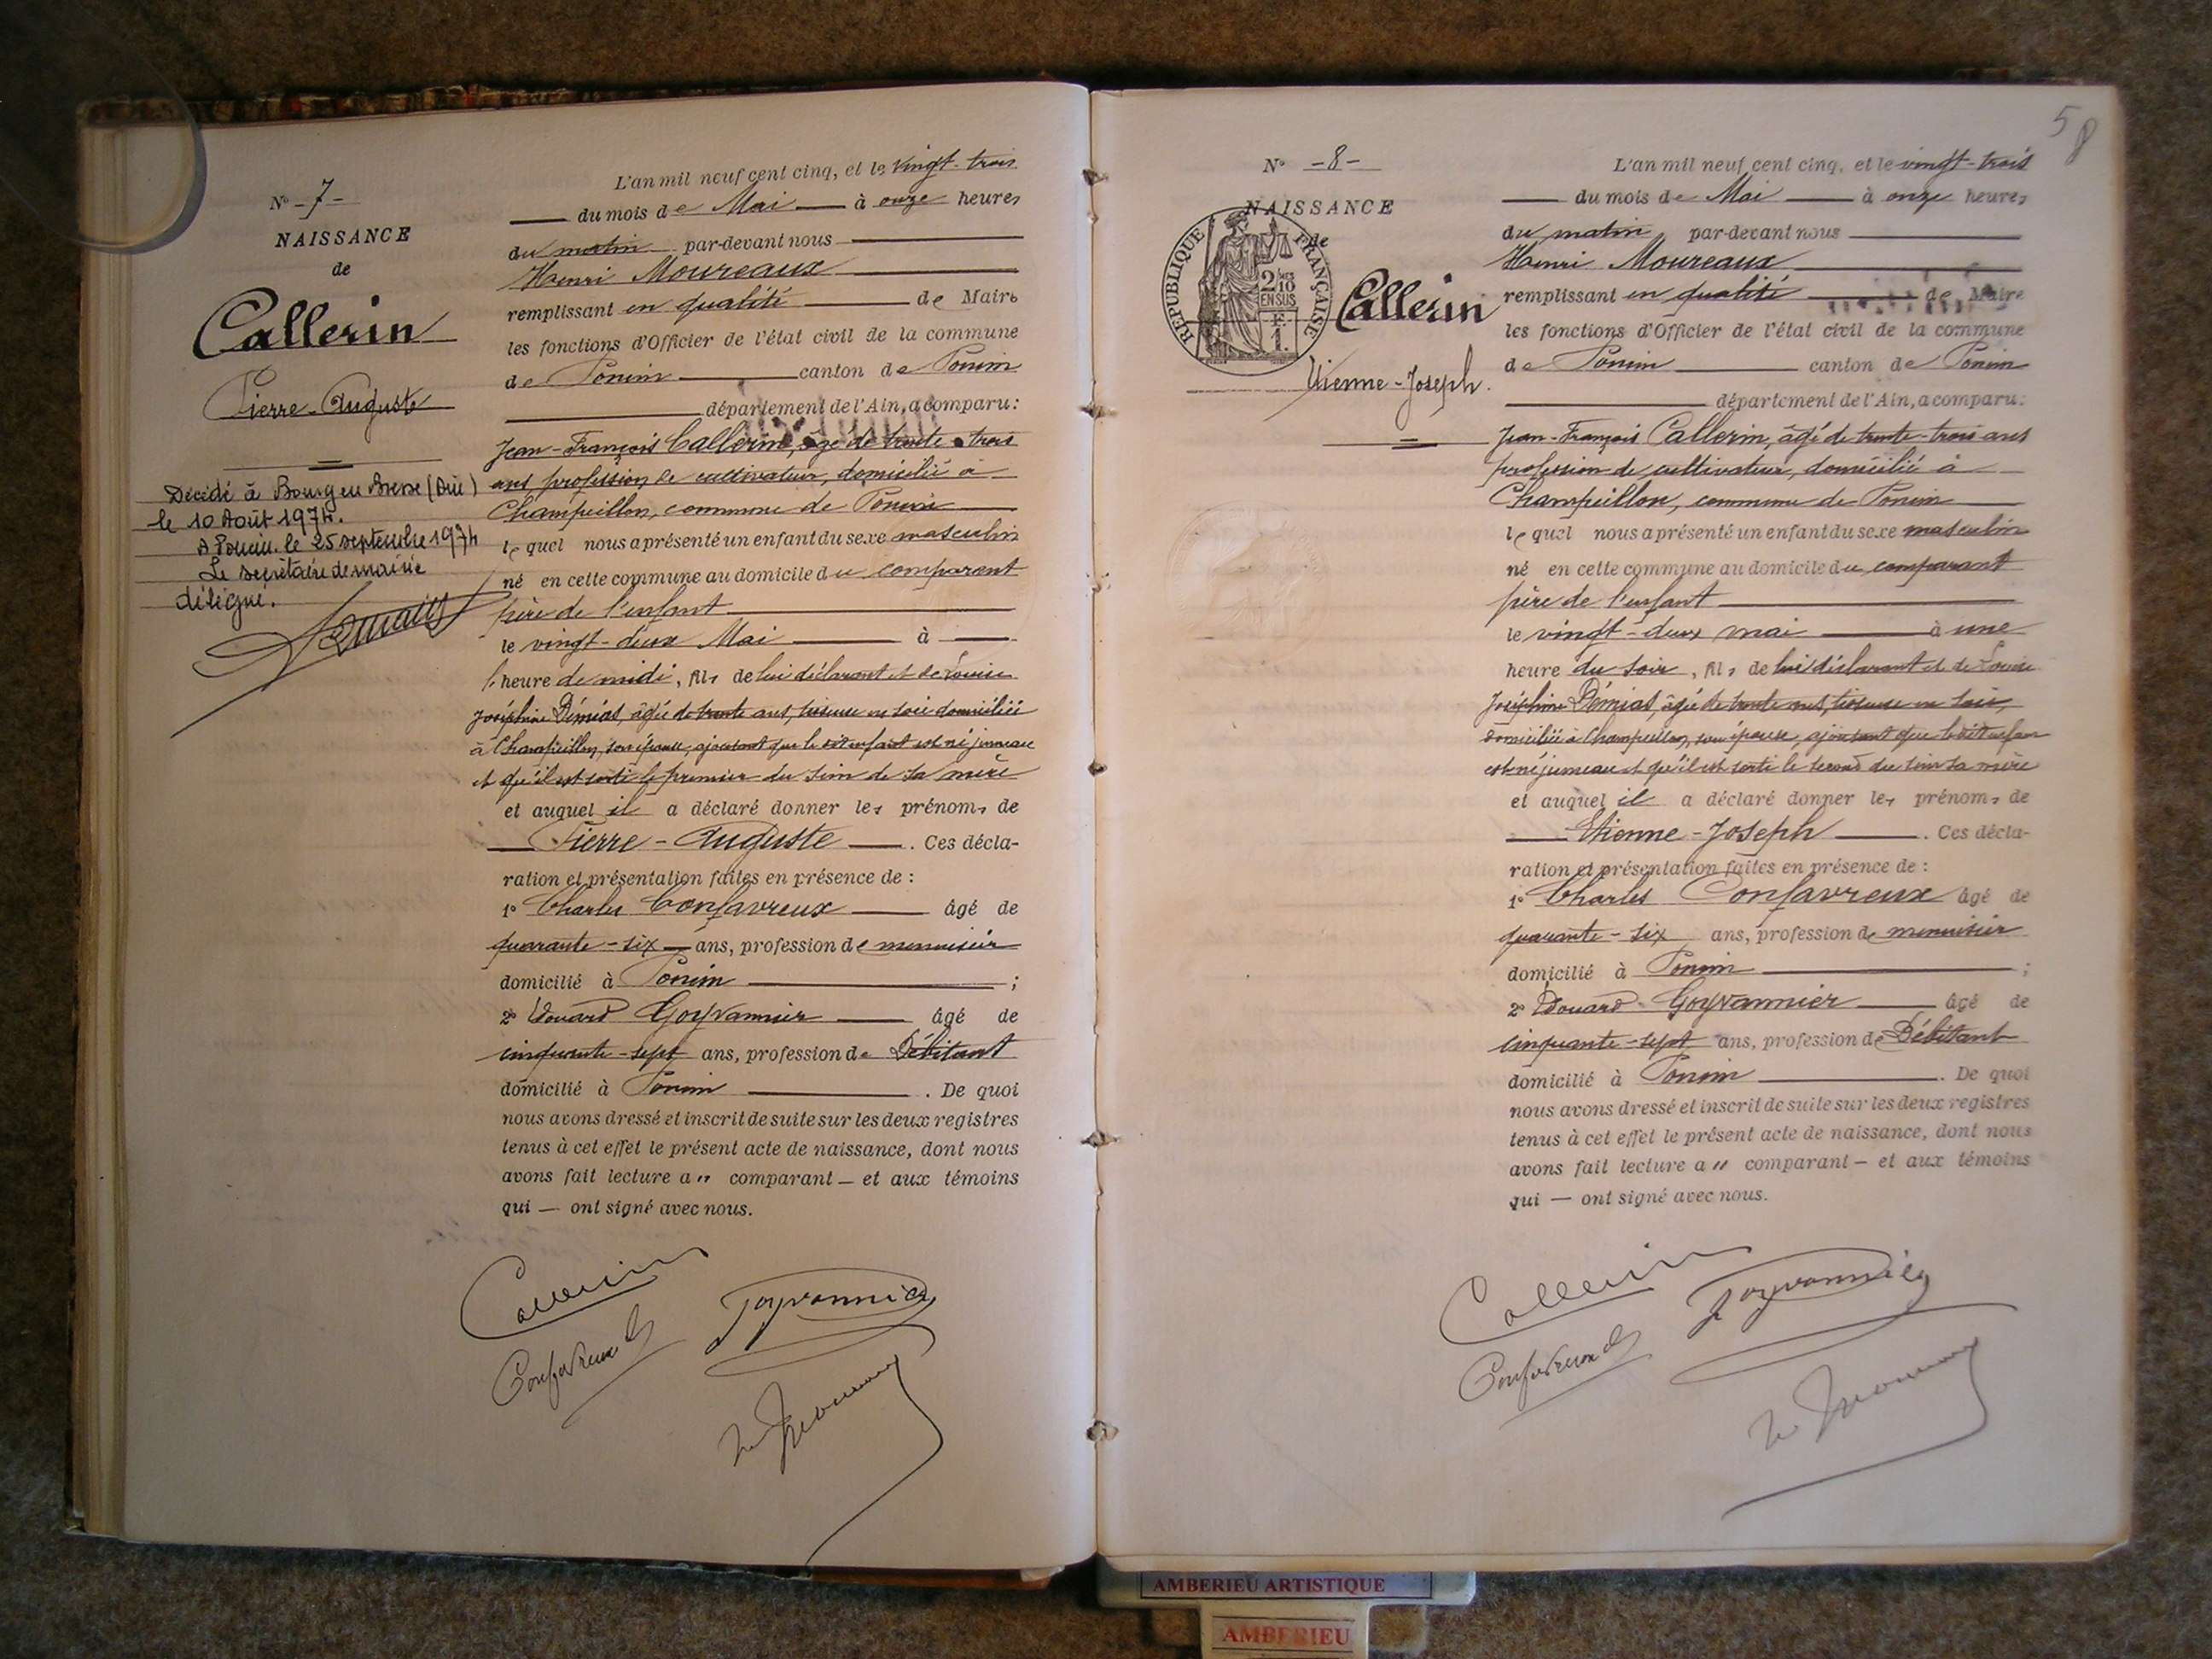 N° - 7 -
NAISSANCE
de
Callerin
Pierre-Auguste
Décédé à Bourg en Bresse (Ain)
le 10 Août 1974.
A Poncin, le 25 septembre 1974
Le secrétaire de mairie
délégué.
L'an mil neuf cent cinq, et le vingt-trois
du mois de Mai à onze heures
du matin par-devant nous
Henri Moureaux
remplissant en qualité de Maire
les fonctions d'Officier de l'état civil de la commune
de Poncin canton de Poncin
département de l'Ain, a comparu:
Jean-François Callerin, âgé de trente-trois
ans profession de cultivateur, domicilié à
Champeillon, commune de Poncin
lequel nous a présenté un enfant du sexe masculin
né en cette commune au domicile du comparant
père de l'enfant
le vingt-deux Mai à
l'heure de midi, fils de lui déclarant et de Louise
Joséphine Démias, âgée de trente ans, tisseuse en soie domiciliée
à Champeillon, son épouse, ajoutant que le dit enfant est né jumeau
et qu'il est sorti le premier du sein de sa mère
et auquel il a déclaré donner les prénoms de
Pierre-Auguste. Ces décla-
ration et présentation faites en présence de :
1° Charles Confavreux âgé de
quarante-six ans, profession de menuisier
domicilié à Poncin ;
2° Edouard Goyvannier âgé de
cinquante-sept ans, profession de Débitant
domicilié à Poncin. De quoi
nous avons dressé et inscrit de suite sur les deux registres
tenus à cet effet le présent acte de naissance, dont nous
avons fait lecture a" comparant — et aux témoins
qui — ont signé avec nous.
Callerin
Goyvannier
Confavreux
58
N° - 8 -
NAISSANCE
de
REPUBLIQUE FRANÇAISE
2/10
EN SUS
F.
1.
Callerin
Etienne-Joseph.
L'an mil neuf cent cinq, et le vingt-trois
du mois de Mai à onze heures
du matin, par-devant nous
Henri Moureaux
remplissant en qualité de Maire
les fonctions d'Officier de l'état civil de la commune
de Poncin canton de Poncin
département de l'Ain, a comparu:
Jean-François Callerin, âgé de trente-trois ans
profession de cultivateur, domicilié à
Champeillon, commune de Poncin
lequel nous a présenté un enfant du sexe masculin
né en cette commune au domicile du comparant
père de l'enfant
le vingt-deux mai à une
heure du soir, fils de lui déclarant et de Louise
Joséphine Démias, âgée de trente ans, tisseuse en soie
domiciliée à Champeillon, son épouse, ajoutant que le dit enfant
est né jumeau et qu'il est sorti le second du sein sa mère
et auquel il a déclaré donner les prénoms de
Etienne-Joseph. Ces décla-
ration et présentation faites en présence de :
1° Charles Confavreux âgé de
quarante-six ans, profession de menuisier
domicilié à Poncin ;
2° Edouard Goyvannier âgé de
cinquante-sept ans, profession de Débitant
domicilié à Poncin. De quoi
nous avons dressé et inscrit de suite sur les deux registres
tenus à cet effet le présent acte de naissance, dont nous
avons fait lecture a" comparant — et aux témoins
qui — ont signé avec nous.
Callerin
Goyvannier
Confavreux
AMBERIEU ARTISTIQUE
AMBERIEU